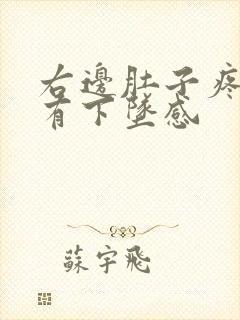 右邊肚子疼
有下墜感
蘇宇飛